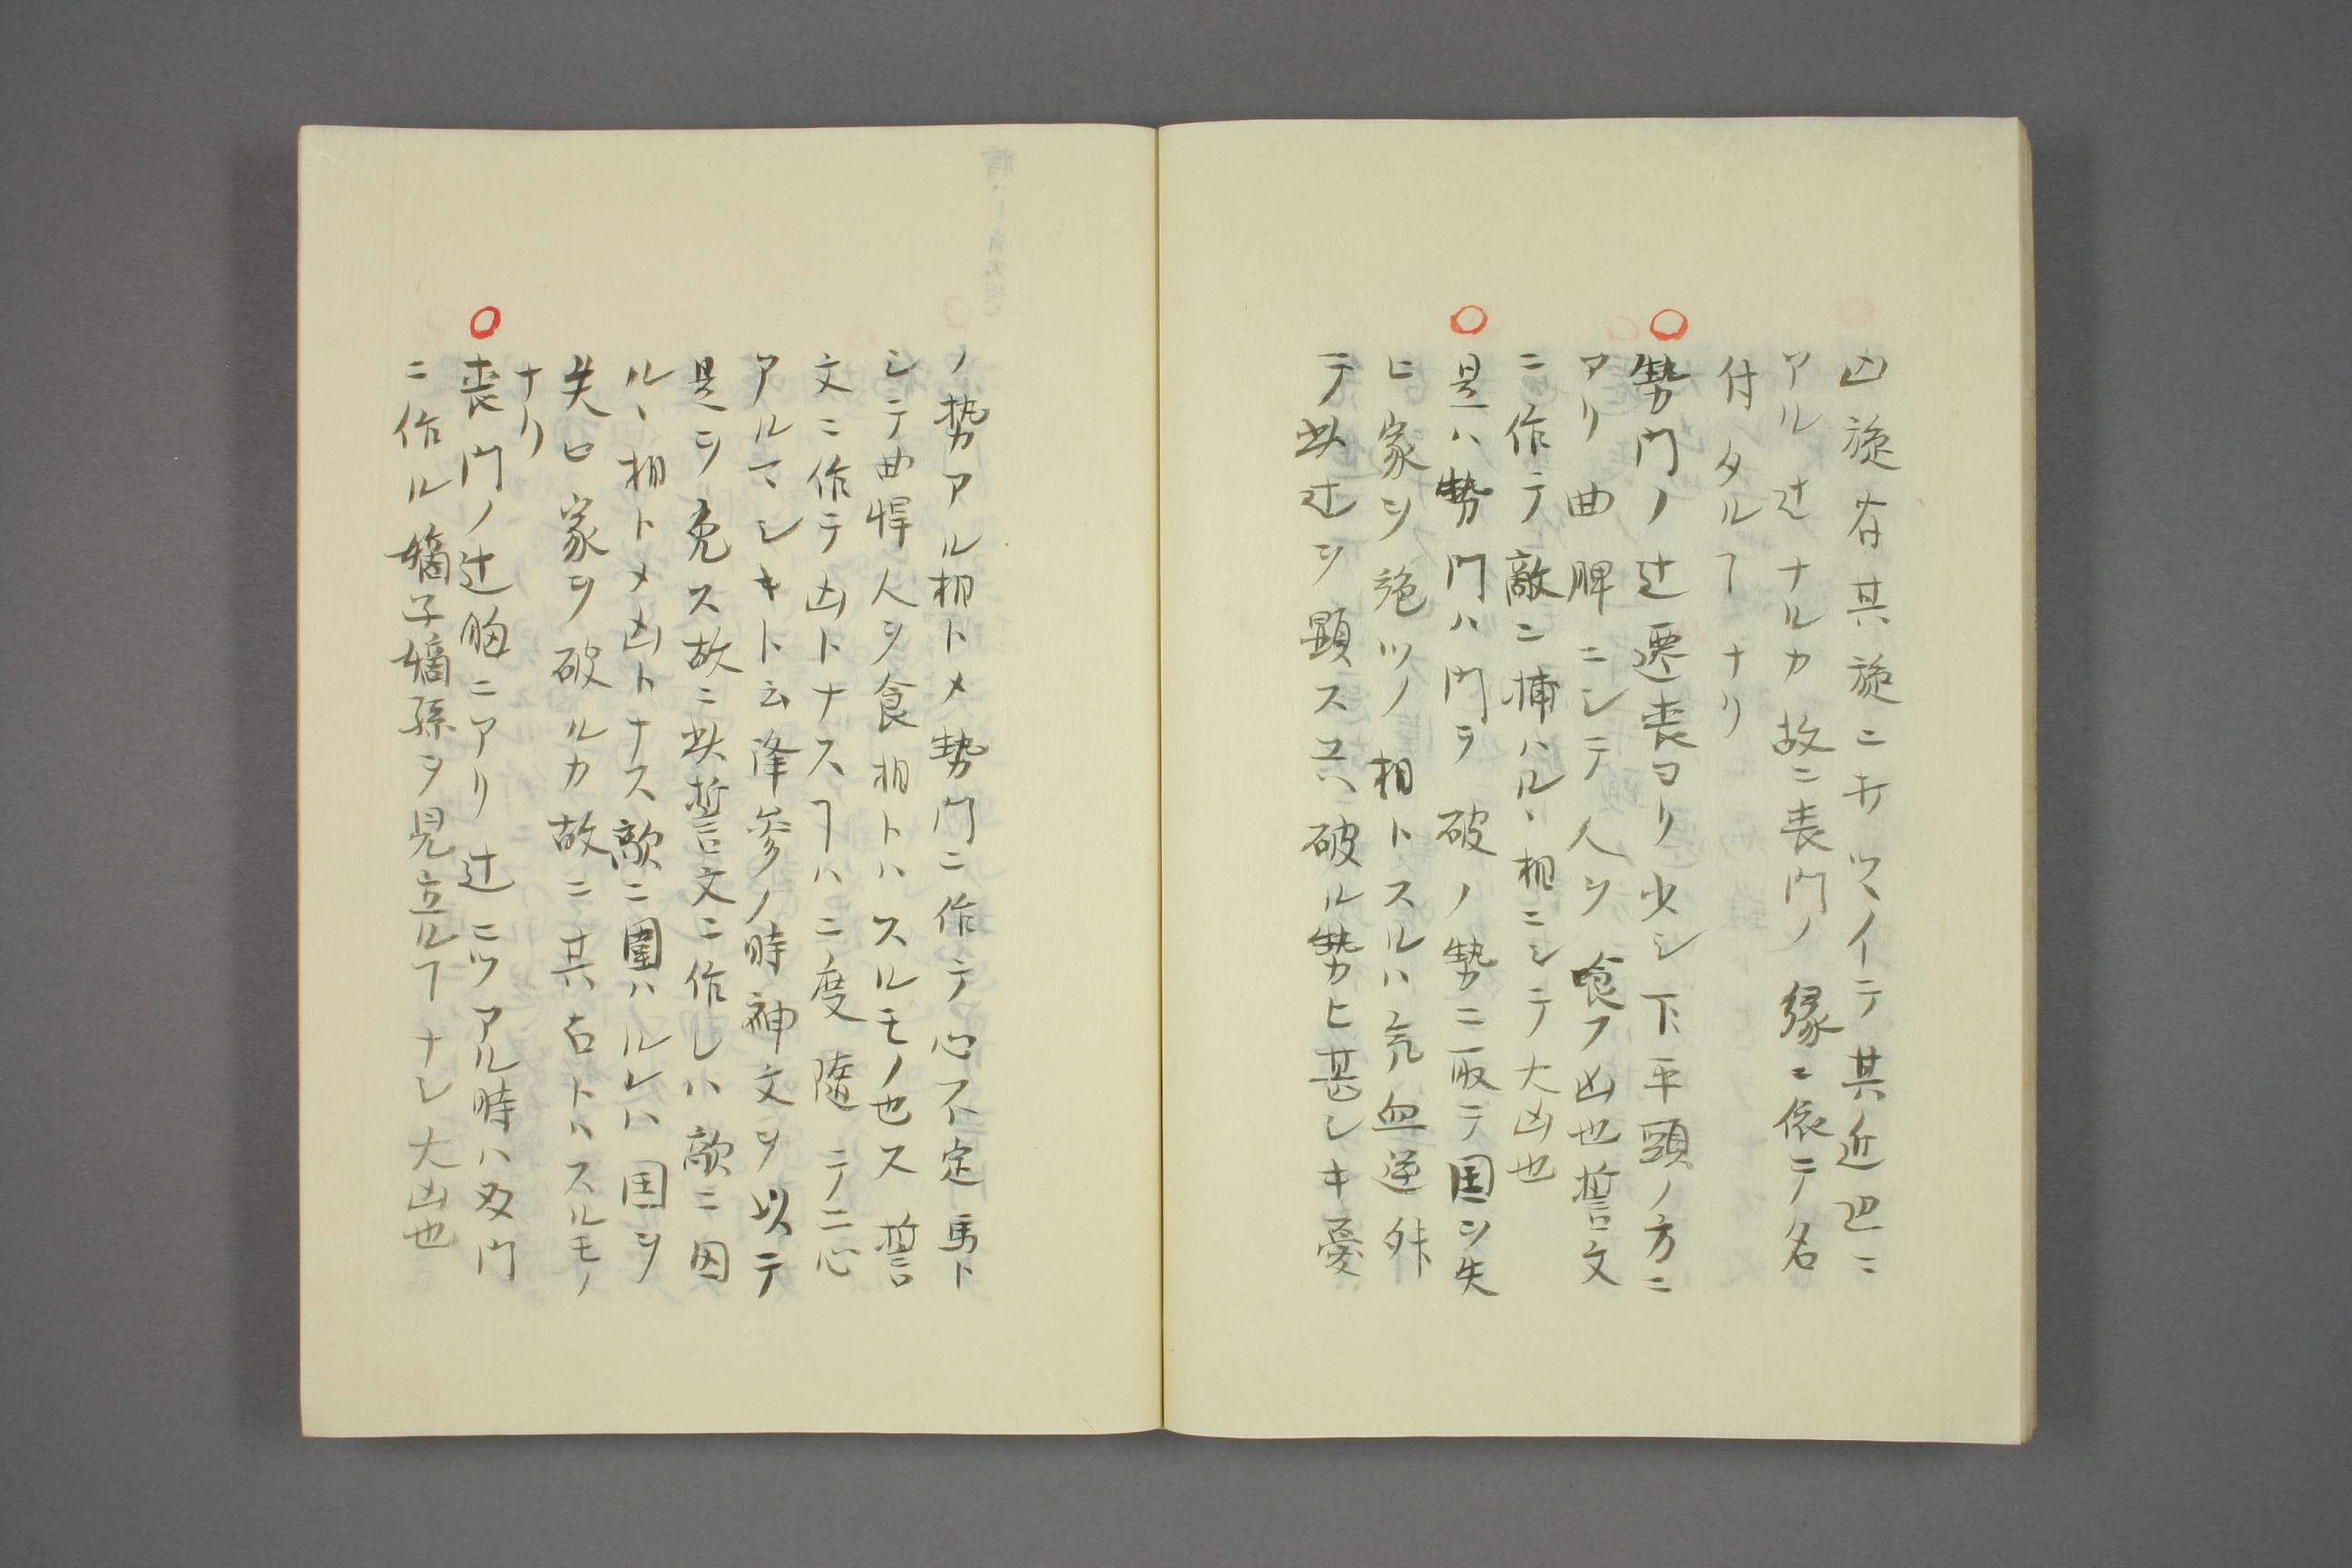 凶旋谷其旋ニキツヽイテ其近辺ニ
アル辻ナルカ故ニ喪門ノ縁ニ依テ名
付タルヿナリ
○勢門ノ辻遷喪ヨリ少シ下平頭ノ方ニ
アリ曲脾ニシテ人ヲ喰フ凶也誓文
ニ作テ敵ニ捕ハルヽ相ニシテ大凶也
○是ハ勢門ハ門ヲ破ノ勢ニ取テ国ヲ失
ヒ家ヲ施ツノ相トスルハ気血逆
テ此辻ヲ顕ス共破ル勢ヒ甚シキ憂
ノ勢アル相トメ勢門ニ作テ心不定馬ト
シテ曲悍人ヲ食相トハスルモノ也ス誓
文ニ作テ凶トナスヿハ二度随テ二心
アルマシキト云降参ノ時神文ヲ以テ
是ヲ免ス故ニ此誓文ニ作レハ敵ニ因
ルヽ相トメ凶トナス敵ニ圍ハルレハ国ヲ
失ヒ家ヲ破ルカ故ニ其占トハスルモノ
ナリ
○喪門ノ辻胸ニアリ辻二ツアル時ハ双門
ニ作ル嫡子嫡孫ヲ見立ルヿナシ大凶也